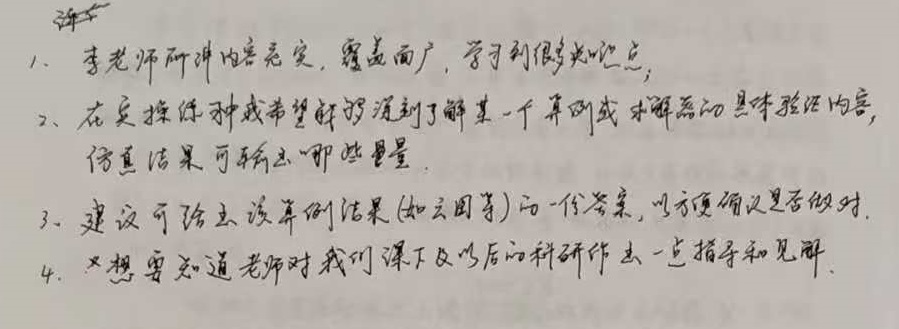 1、李老师所讲内容充实,覆盖面广,学习到很多知识点;
2、在实操课种我希望能够深刻了解某一个算例或求解器的具体验证内容,
仿真结果可输出哪些量.
3、建议可给出该算例结果(如云图等)的一份答案,以方便确认是否做对.
4.*想要知道老师对我们课下及以后的科研作出一点指导和见解.